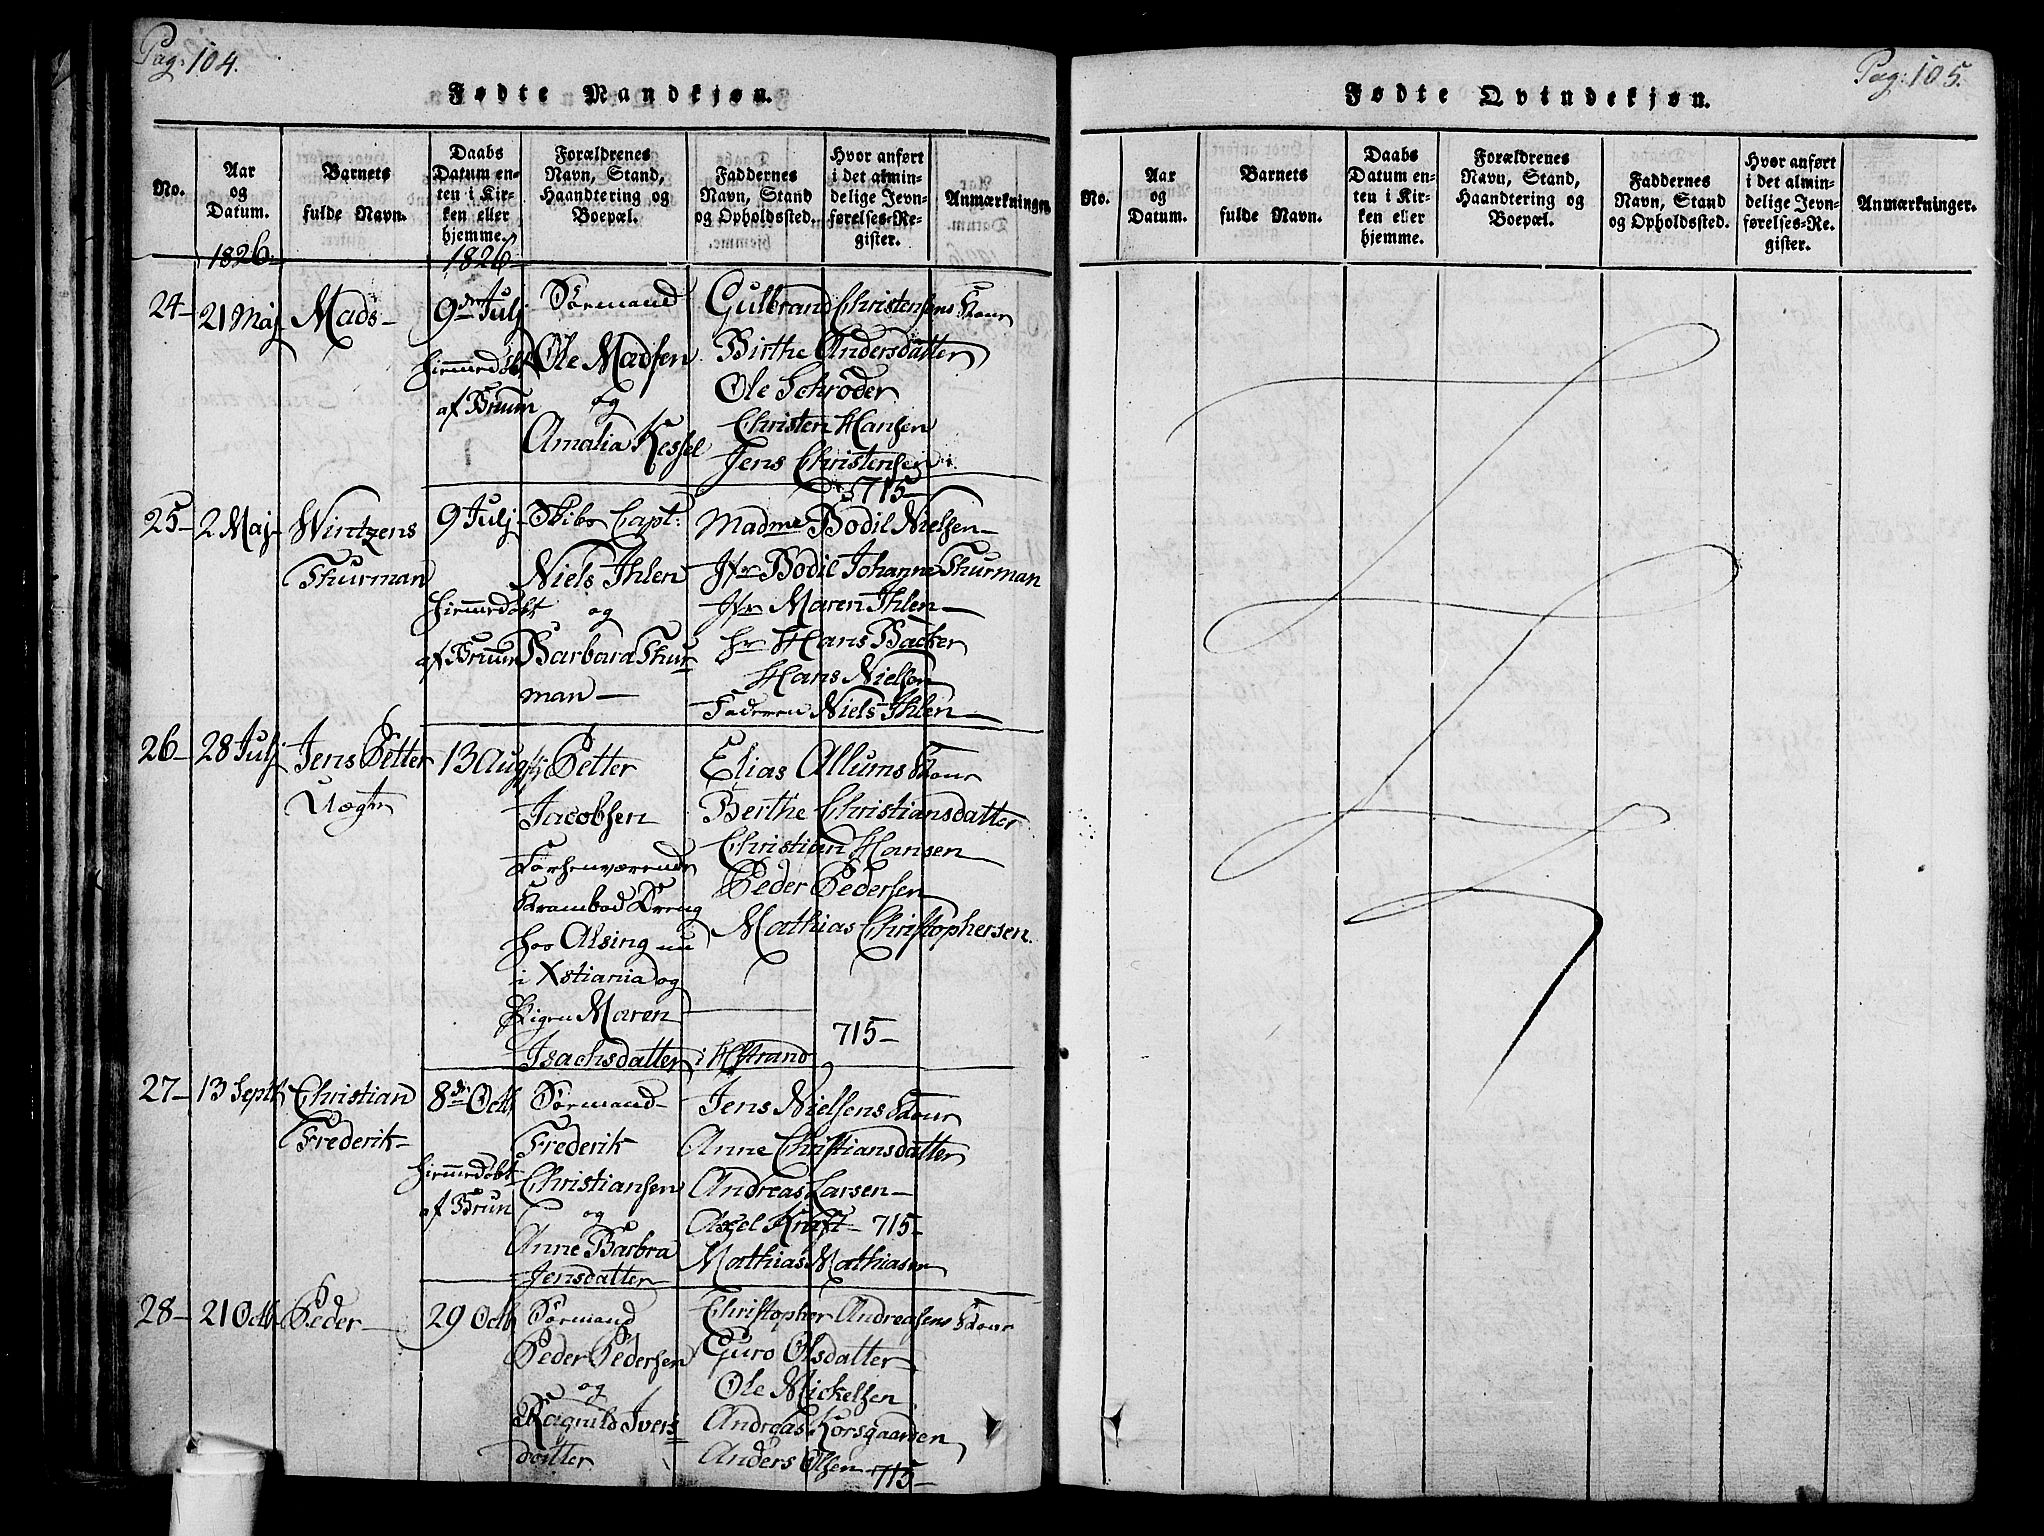 Pag: 104.
Fødte Mandkjøn.
No.
Aar
og
Datum.
Barnets
fulde Navn.
Daabs
Datum en-
ten i Kir-
ken eller
hjemme.
Forældrenes
Navn, Stand,
Haandtering og
Boepæl.
Faddernes
Navn, Stand
og Opholdssted.
Hvor anført
i det almin-
delige Jevn-
førelses-Re-
gister.
Anmærkninger
1826
1826
24 21 Maj Mads
9de Julj
hiemmedøbt
af Bruun
Sørmand
Ole Madsen
og
Amalia Kessel
Gulbrand Christensens Kone
Birthe Andersdatter
Ole Schrøder
Christen Hansen
Jens Christensen
715
25 2 Maj Wintzens
Thurman
9 Julj
hiemmedøbt
af Bruun
Skibs Capt:
Niels Ihlen
og
Barbara Thur
man
Madme Bodil Nielsen
Jfr Bodil Johanne Thurman
Jfr Maren Ihlen
Hr Hans Backer
Hans Nielsen
Faderen Niels Ihlen
26 28 Julj Jens Petter
Uægte
13 Aug
Petter
Jacobsen
Forhenværende
Krambod Dreng
hos Alsing nu
i Xstiania og
Pigen Maren
Isachsdatter i HStrand
Elias Allums Kone
Berthe Christiansdatter
Christian Hansen
Peder Pedersen
Mathias Christophersen.
715
27 13 Sept Christian
Frederik
8de Octb
hiemmedøbt
af Brun
Sørmand
Frederik
Christiansen
og
Anne Barbra
Jensdatter
Jens Nielsens Kone
Anne Christiansdatter
Andreas Larsen
Axel Kraft 715
Mathias Mathiasen
28 21 Octb Peder
29 Octb
Sørmand
Peder Pedersen
og
Ragnild Ivers
datter
Christopher Andreasens Kone
Guro Olsdatter
Ole Mickelsen
Andreas Korsgaarden
Anders Olsen 715
Pag: 105.
Fødte Qvindekjøn.
No.
Aar
og
Datum.
Barnets
fulde Navn.
Daabs
Datum en-
ten i Kir-
ken eller
hjemme.
Forældrenes
Navn, Stand,
Haandtering og
Boepæl.
Faddernes
Navn, Stand
og Opholdssted.
Hvor anført
i det almin-
delige Jevn-
førelses-Re-
gister.
Anmærkninger.